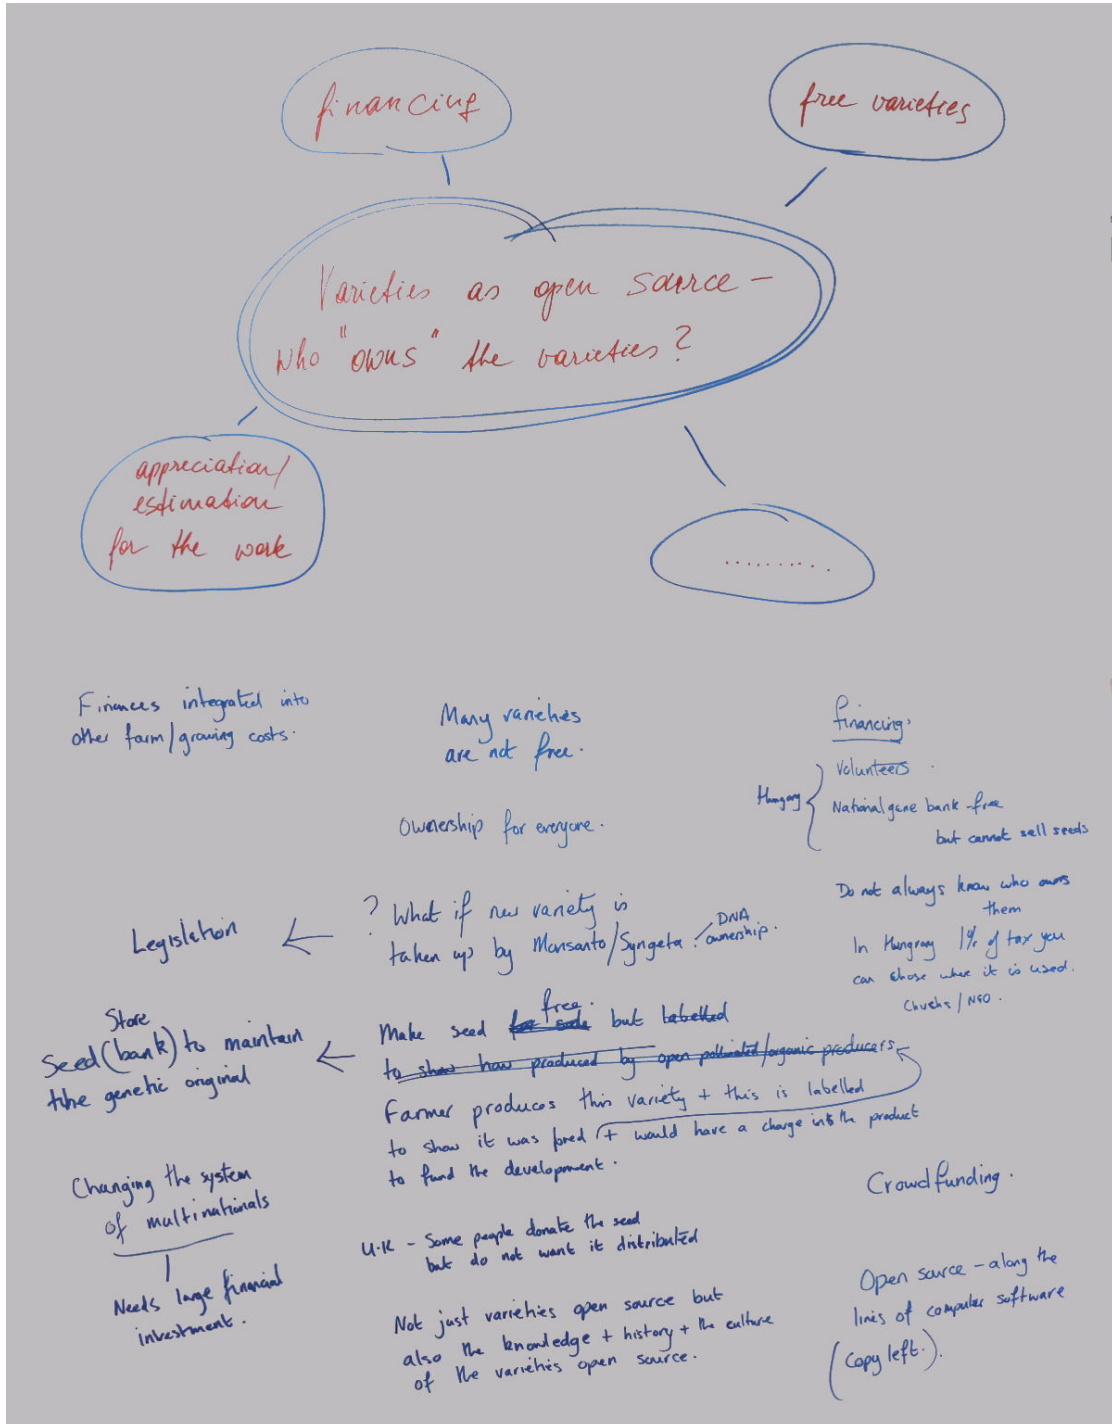 financing
free varieties
Varieties as open source –
who "owns" the varieties?
appreciation/
estimation
for the work
..........
Finances integrated into
other farm/growing costs.
Many varieties
are not free.
Ownership for everyone.
financing.
Hungary
Volunteers.
National gene bank - free
but cannot sell seeds
Do not always know who owns
them
In Hungray 1% of tax you
can chose where it is used.
Chuchs/NGO.
Legislation
? What if new variety is
taken up by Monsanto/Syngeta
DNA
ownership.
Store
Seed (bank) to maintain
the genetic original
free.
Make seed for sale but labelled
to show how produced by open pollinated/organic producers
Farmer produces this variety + this is labelled
to show it was bred + would have a charge into the product
to fund the development.
Changing the system
of multinationals
Needs large financial
investment.
U.K – Some people donate the seed
but do not want it distributed
Not just varieties open source but
also the knowledge + history + the culture
of the varieties open source.
Crowdfunding.
Open source – along the
lines of computer software
(copy left.).